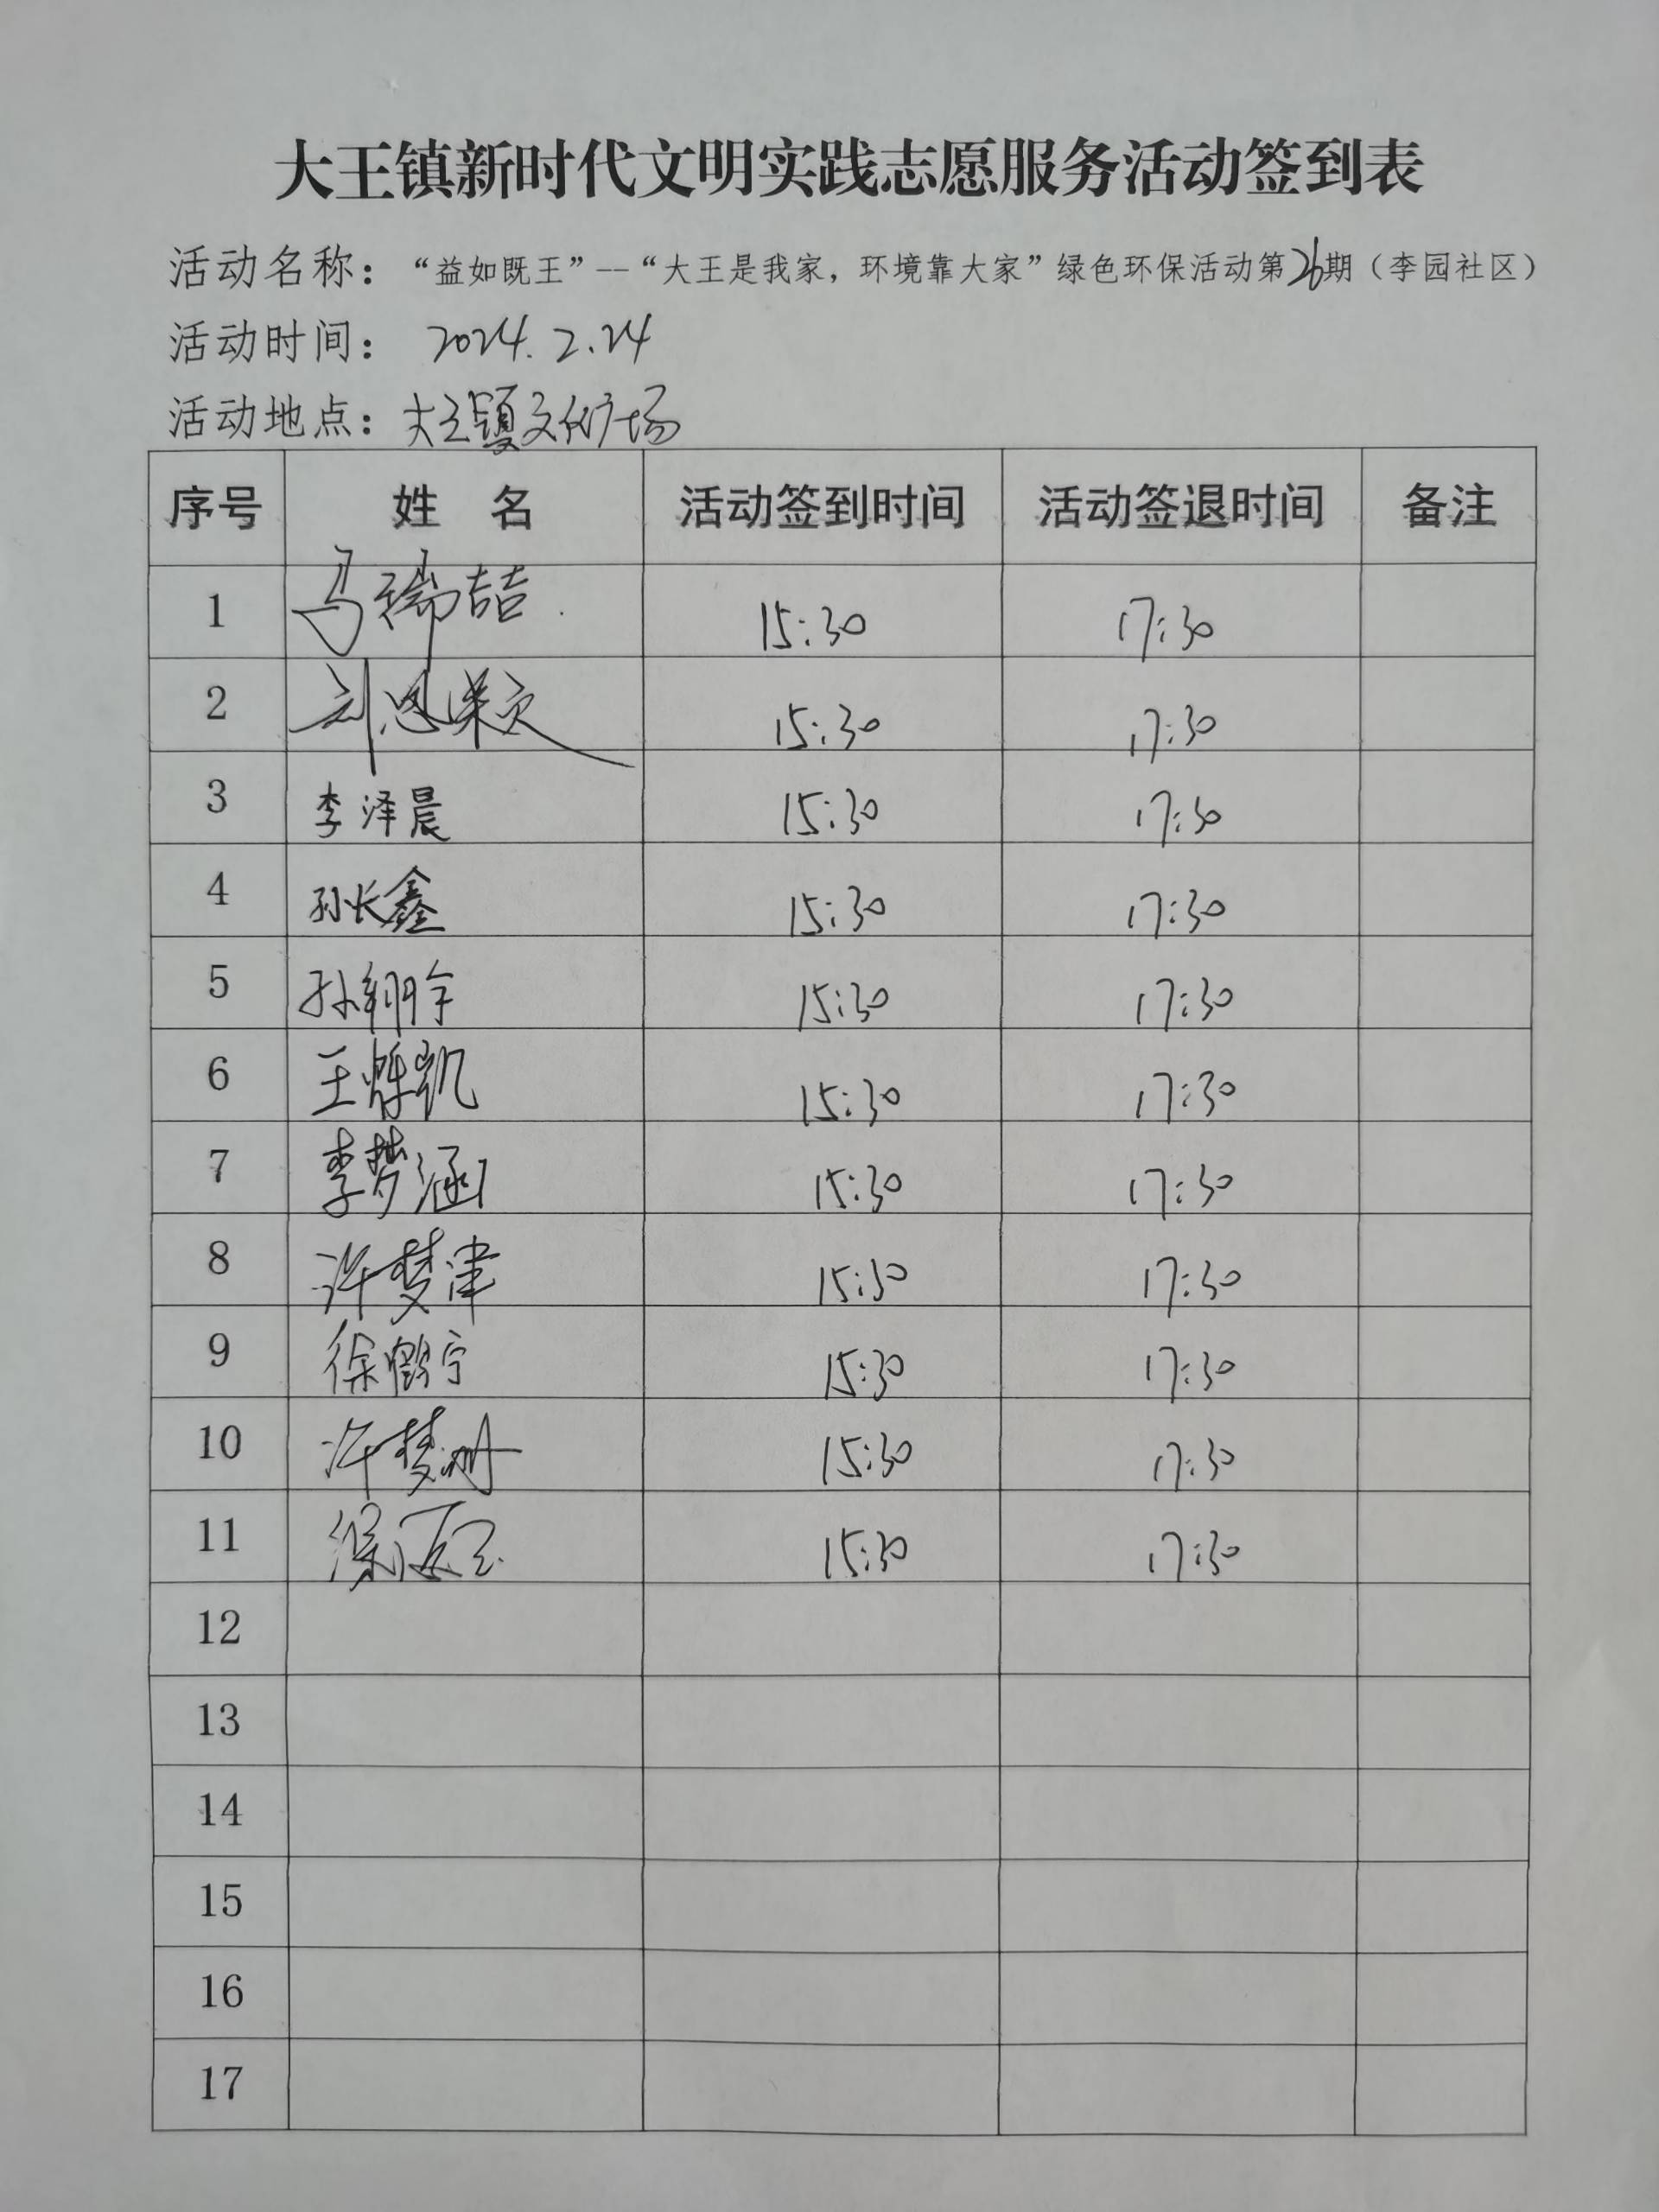 大王镇新时代文明实践志愿服务活动签到表
活动名称：“益如既王”--“大王是我家，环境靠大家”绿色环保活动第26期（李园社区）
活动时间： 2024.2.24
活动地点：大王镇文化广场
序号 姓 名 活动签到时间 活动签退时间 备注
1 马瑞喆 15:30 17:30
2 刘恩 15:30 17:30
3 李泽晨 15:30 17:30
4 孙长鑫 15:30 17:30
5 孙翩宇 15:30 17:30
6 王烁凯 15:30 17:30
7 李梦涵 15:30 17:30
8 许梦津 15:30 17:30
9 徐鹤宁 15:30 17:30
10 许梦珊 15:30 17:30
11 15:30 17:30
12
13
14
15
16
17